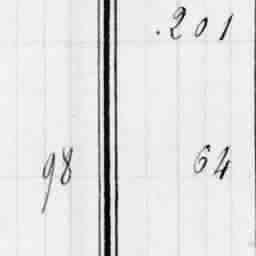 .201
98 64